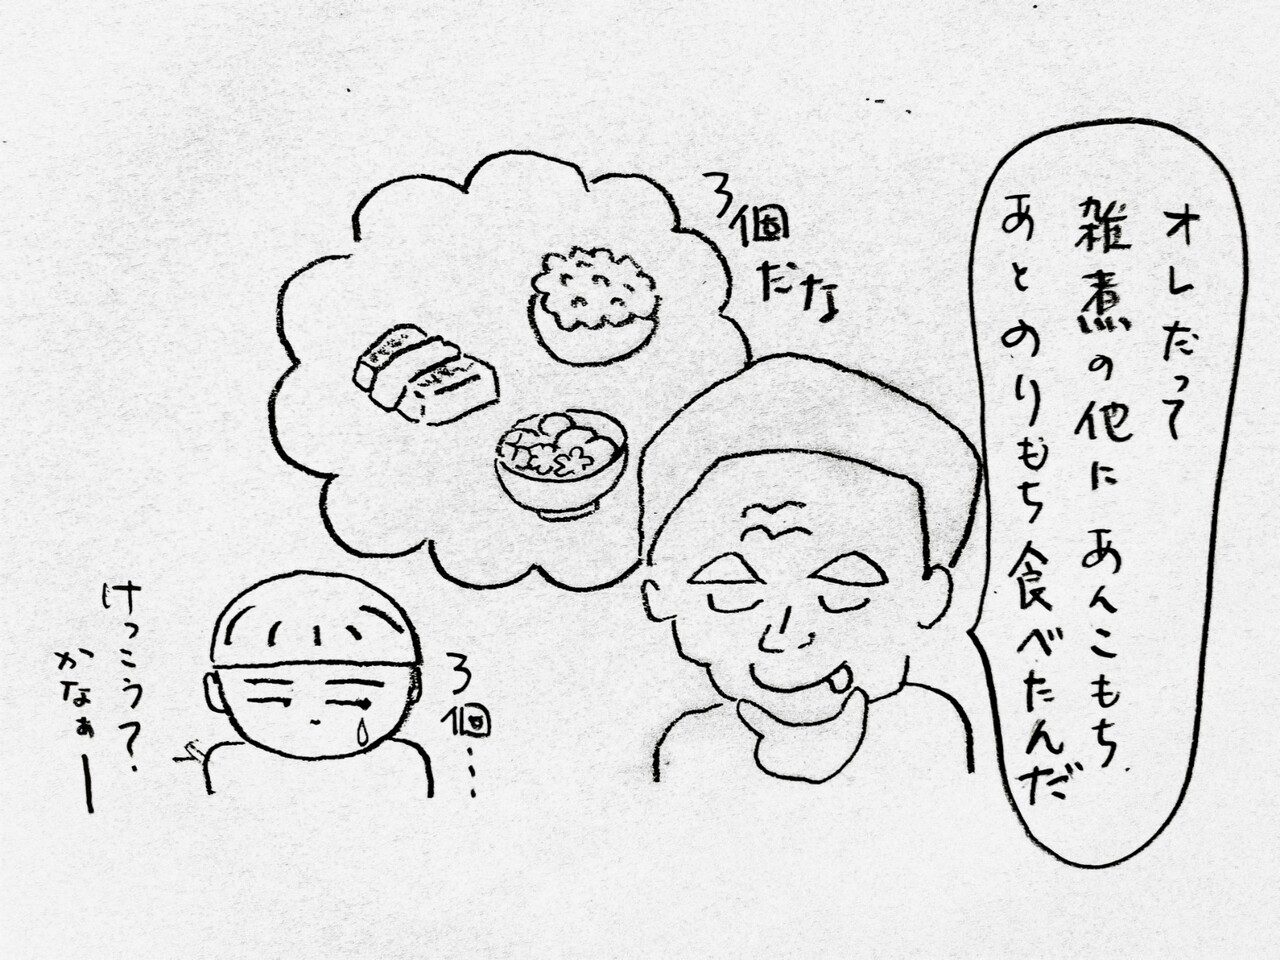 オレだって
雑煮の他にあんこもち
あとのりもち食べたんだ
3個
だな
3個…
けっこう?
かなぁー